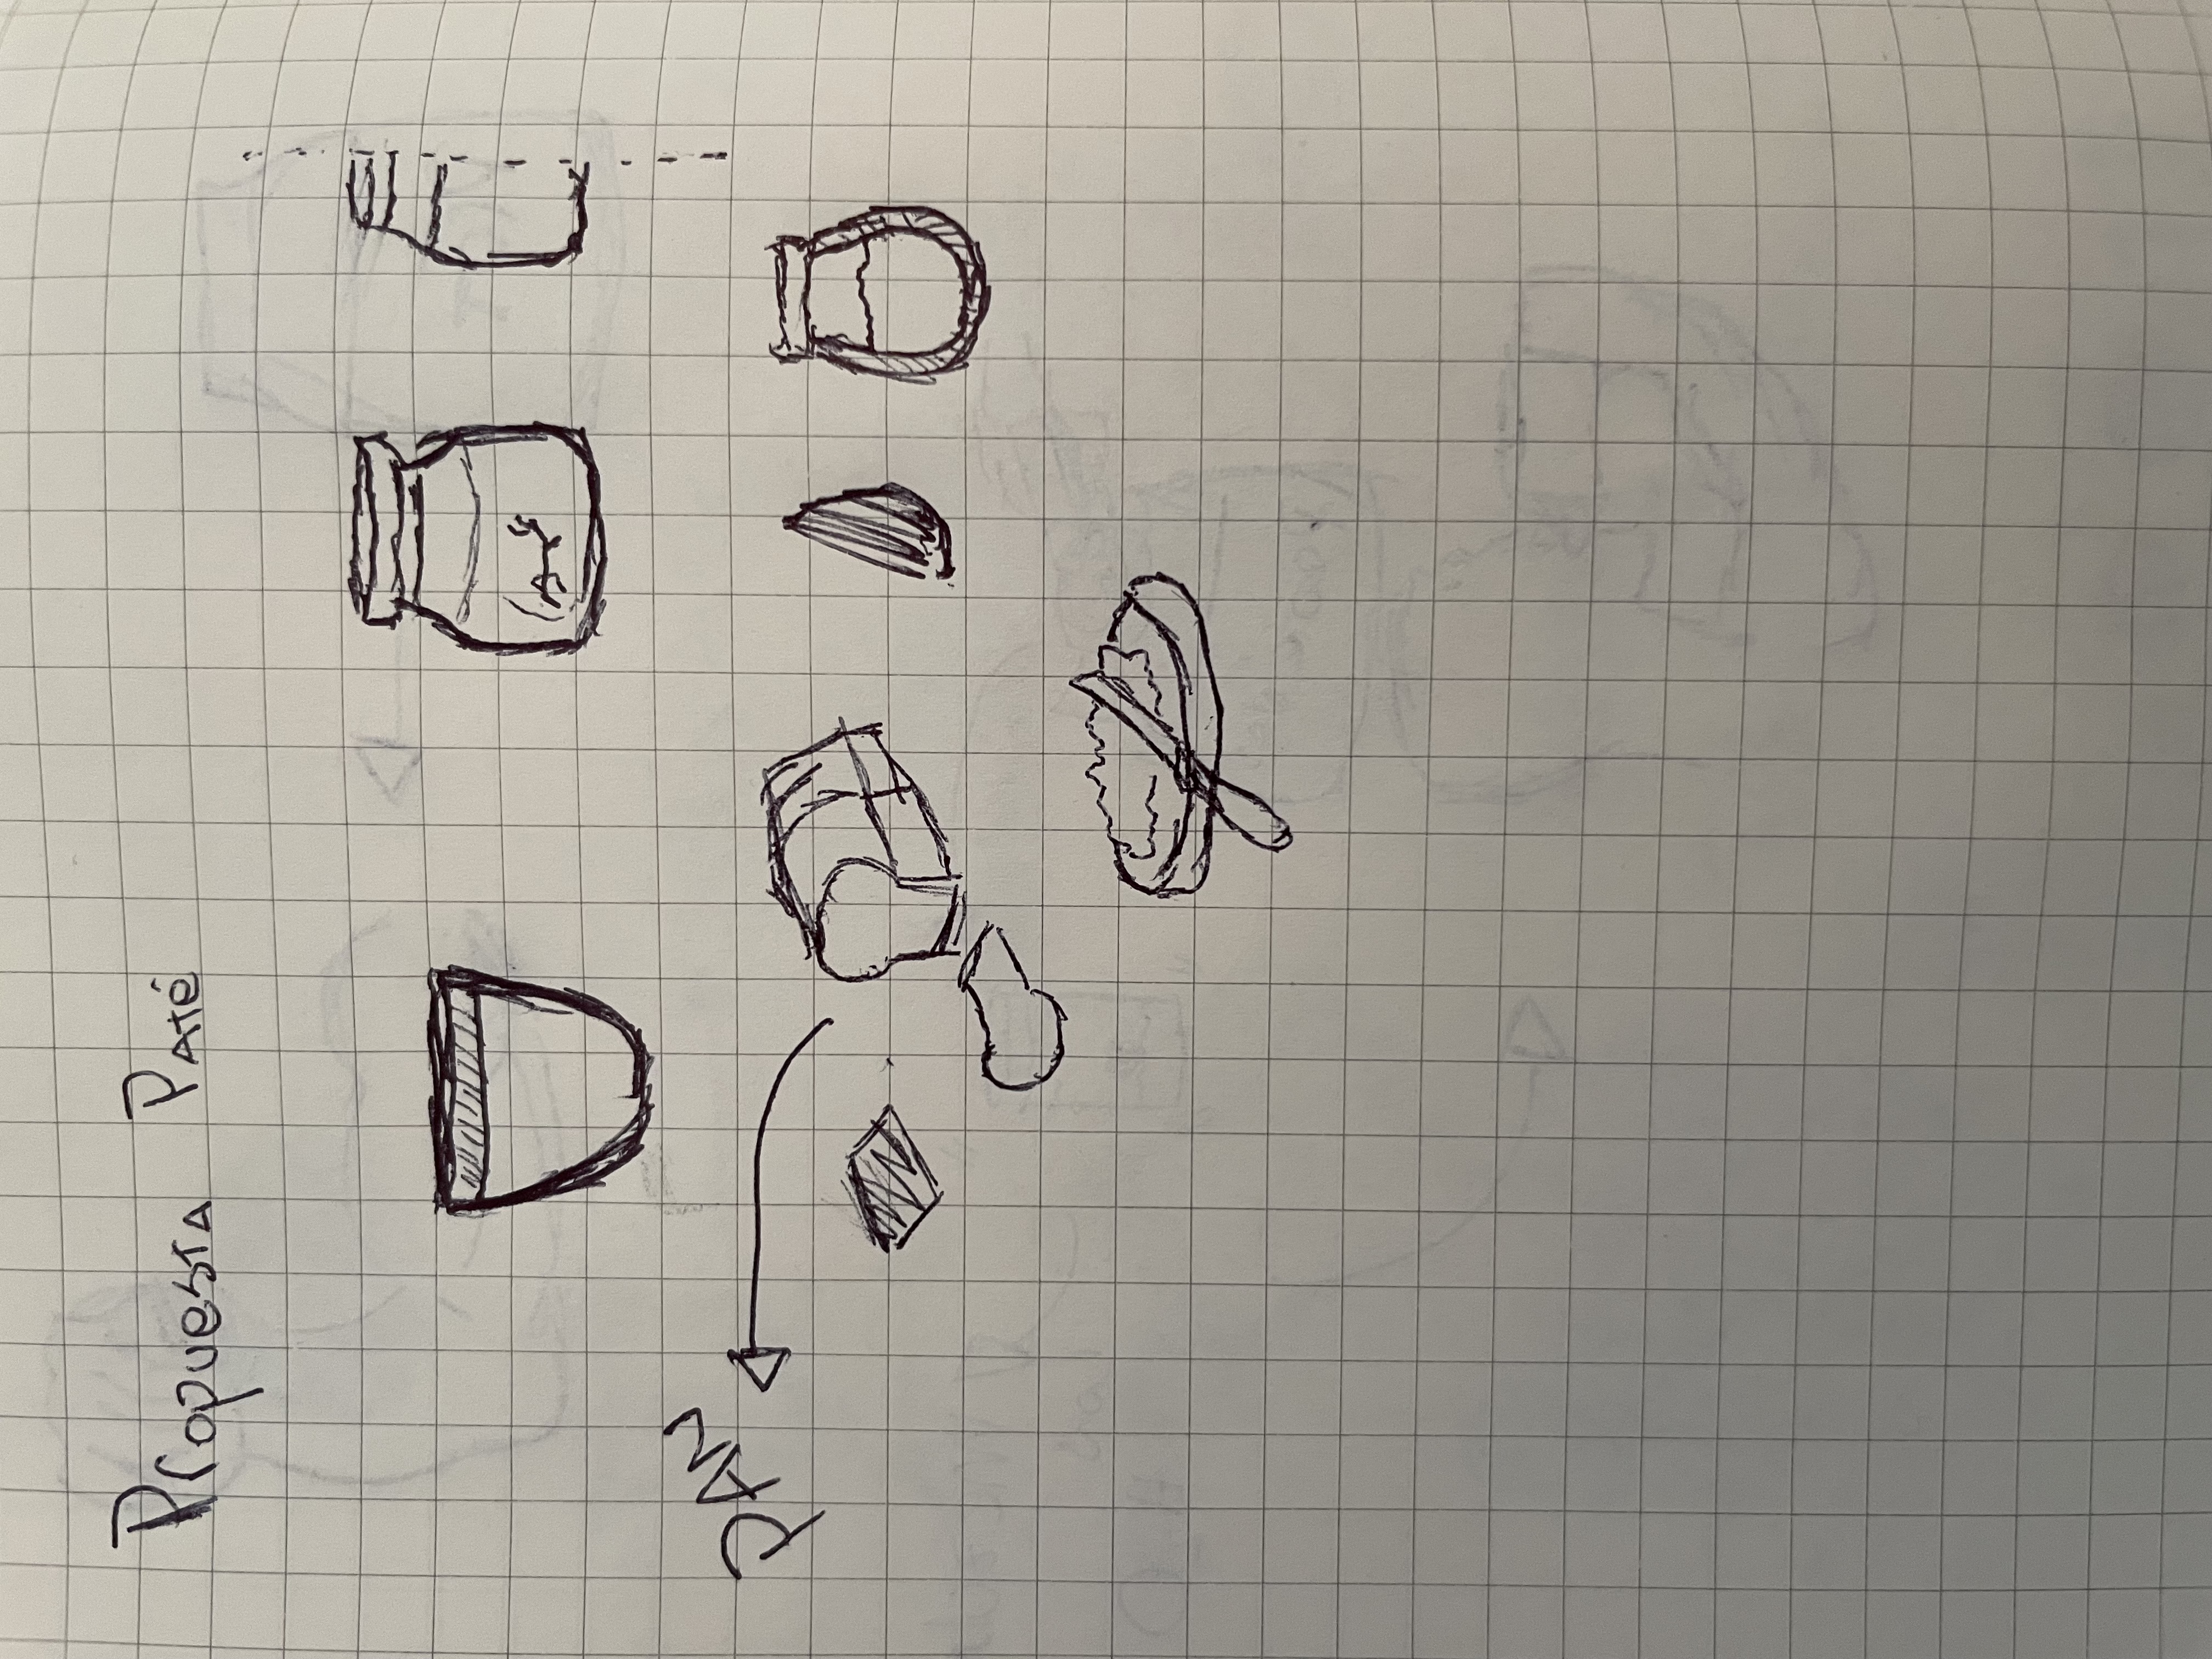 Propuesta Paté
PAN